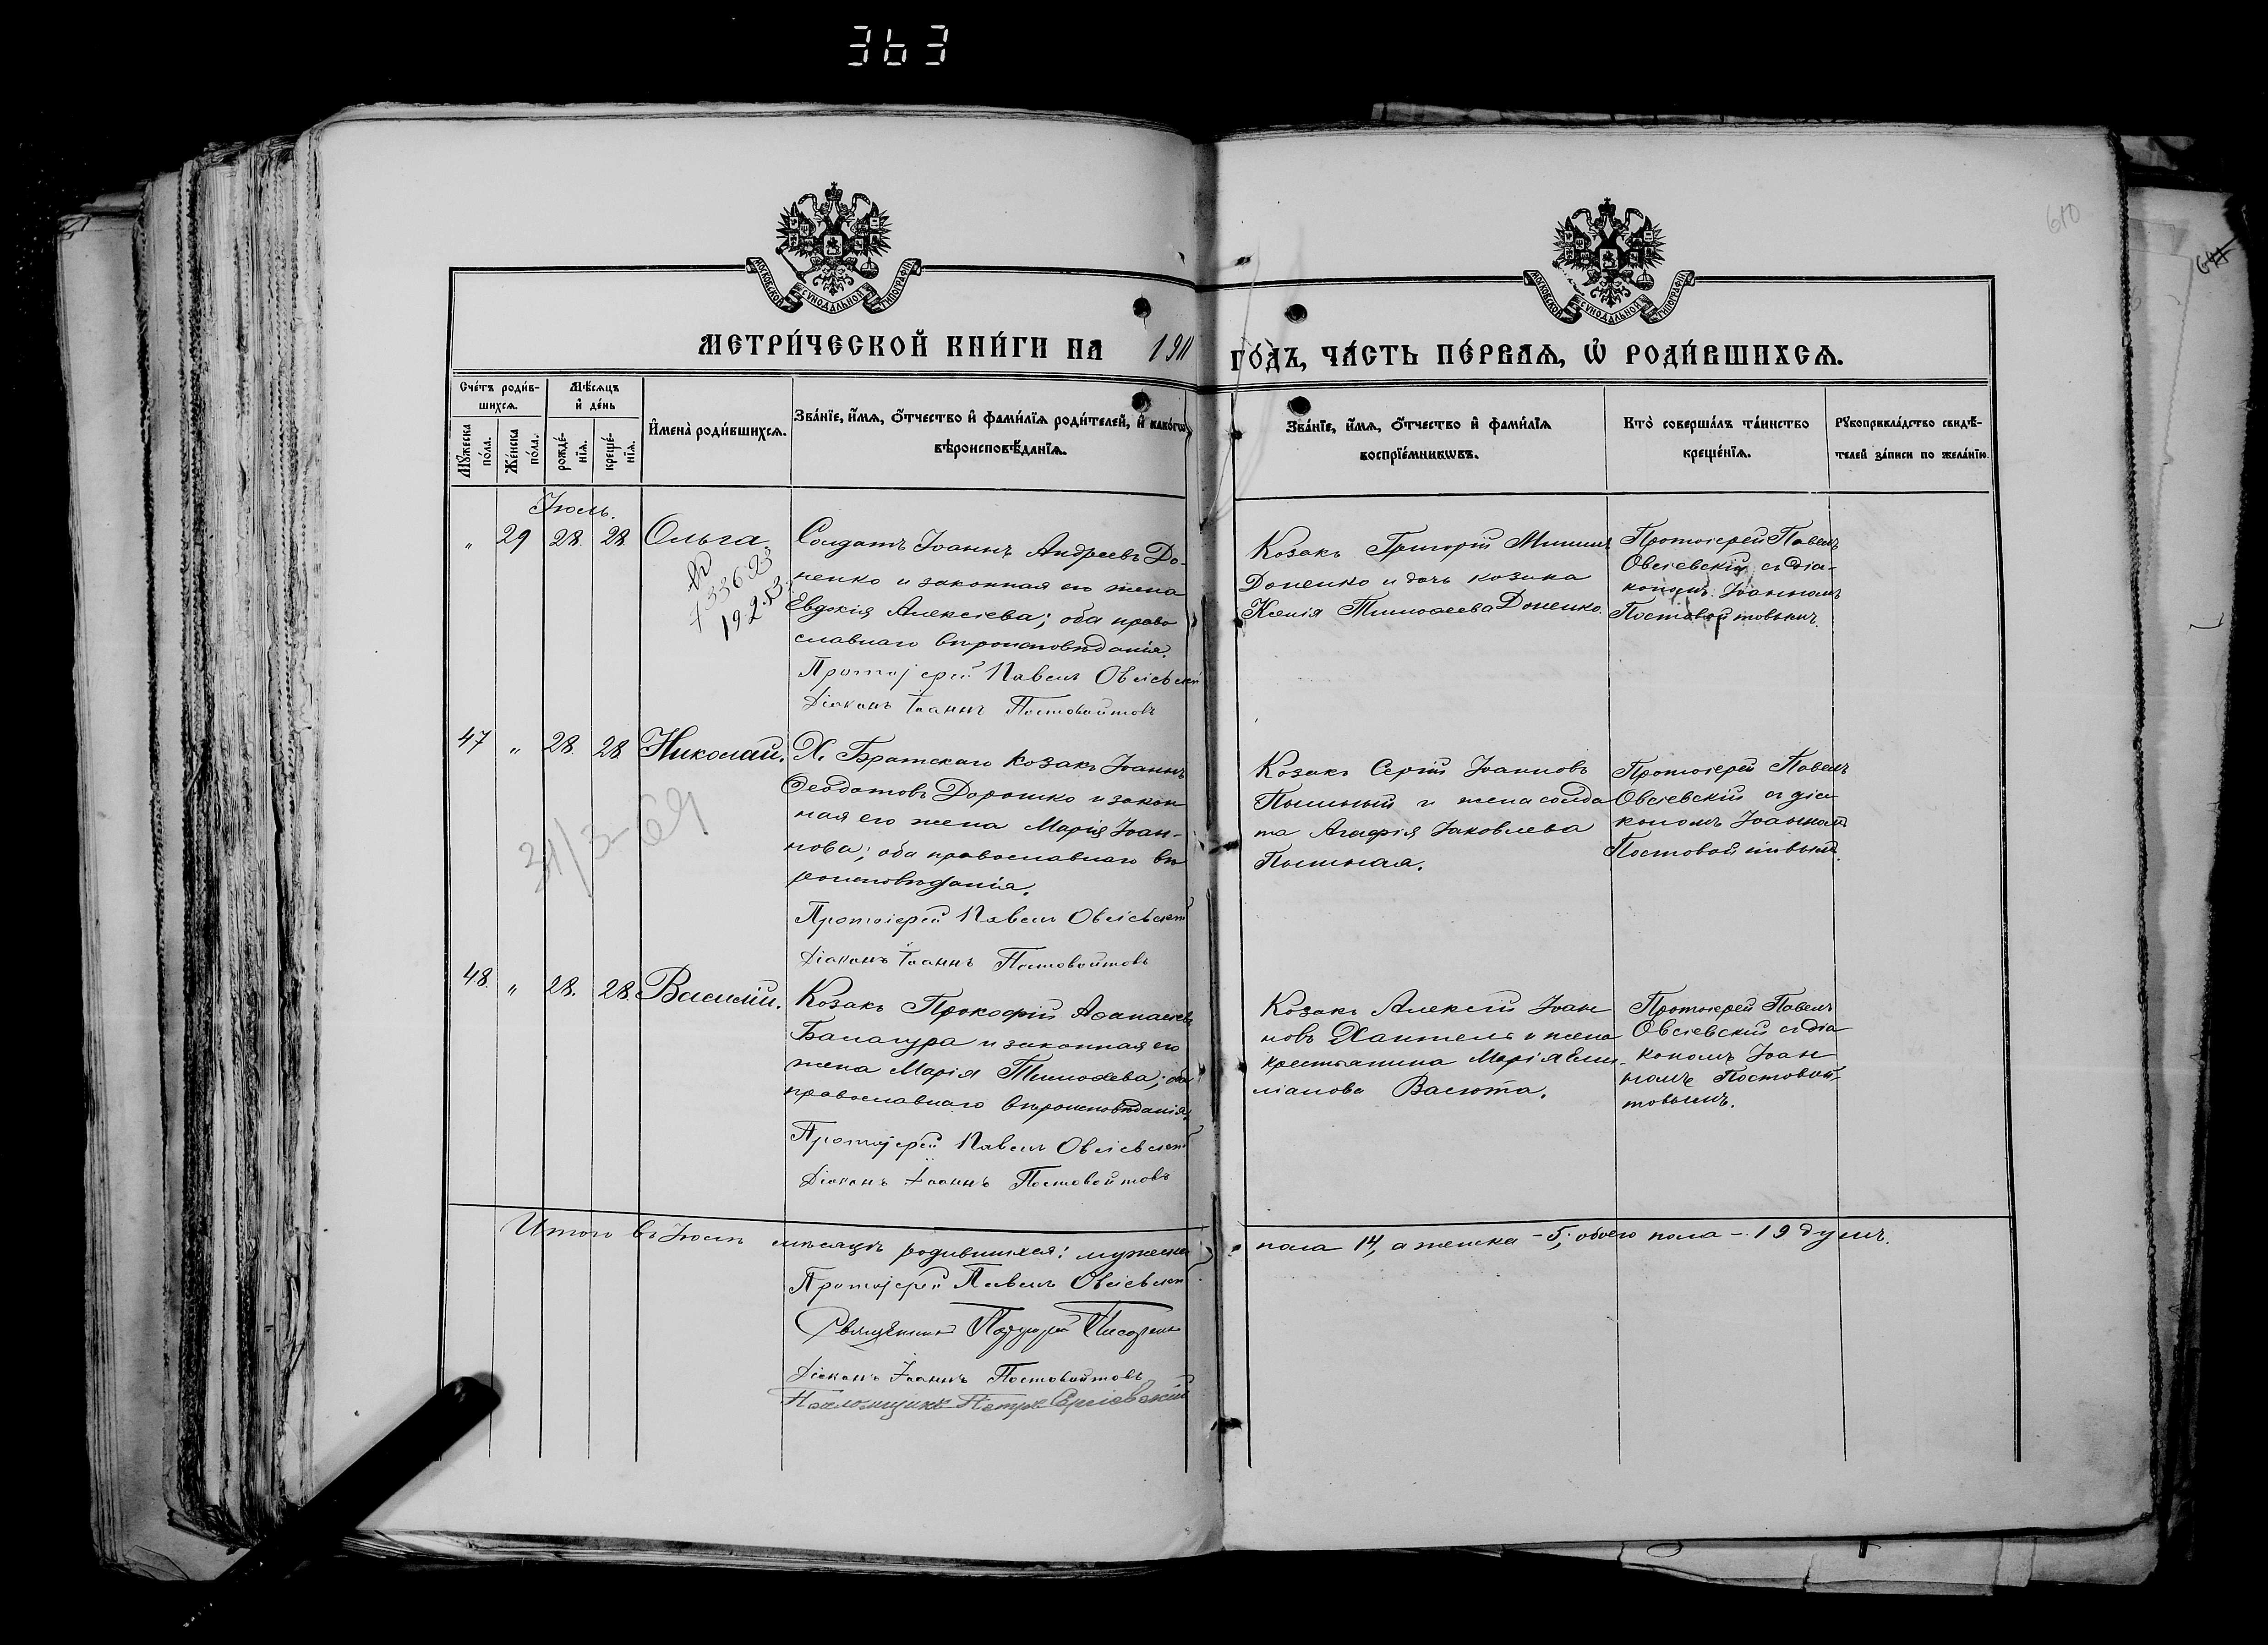 363
610
МОСКОВСКОЙ СѴНОДАЛЬНОЙ ТИПОГРАФІИ
МОСКОВСКОЙ СѴНОДАЛЬНОЙ ТИПОГРАФІИ
МЕТРИ́ЧЕСКОЙ КНИ́ГИ НА 1911 ГО́ДЪ, ЧА́СТЬ ПЕ́РВАЯ, Ѡ҆ РОДИ́ВШИХСЯ.
Сче́тъ роди́в-
шихся.
Мѣ́сяцъ
и҆ де́нь
Му́жеска
по́ла.
Же́нска
по́ла.
рожде́-
нїя.
креще́-
нїя.
И҆мена̀ роди́вшихся.
Зва́нїе, и҆́мя, ѻ҆́тчество и҆ фами́лїя роди́телей, и҆ како́гѡ
вѣроисповѣ́данїя.
Зва́нїе, и҆́мя, ѻ҆́тчество и҆ фами́лїя
воспрїе́мникѡвъ.
Кто̀ соверша́лъ та́инство
креще́нїя.
Рꙋкоприкла́дство свидѣ́-
телей за́писи по жела́нїю.
Іюль.
„ 29 28. 28. Ольга.
Солдатъ Іоаннъ Андреевъ До-
ненко и законная его жена
Евдокія Алексіева; оба право
славнаго вѣроисповѣданія.
Протоіерей Павелъ Овсіевскій
Діаконъ Іоаннъ Постовойтовъ
Козакъ Григорій
Доненко и дочь козака
Ксенія Тимоѳеева Доненко.
Протоіерей Павелъ
Овсіевскій съ діа-
кономъ Іоанномъ
Постовойтовымъ.
47 „ 28. 28 Николай.
Х. Братскаго козакъ Іоаннъ
Ѳеодотовъ Дорошко и закон
ная его жена Марія Іоан-
нова; оба православнаго вѣ
роисповѣданія.
Протоіерей Павелъ Овсіевскій
Діаконъ Іоаннъ Постовойтовъ
31/3-69
Козакъ Сергій Іоанновъ
Пышный и жена солда
та Агафія Іаковлева
Пышная.
Протоіерей Павелъ
Овсіевскій съ діа
кономъ Іоанномъ
Постовойтовымъ.
48. „ 28. 28. Василій.
Козакъ Прокофій Аѳанасіевъ
Балагура и законная его
жена Марія Тимоѳеева; оба
православнаго вѣроисповѣданія.
Протоіерей Павелъ Овсіевскій
Діаконъ Іоаннъ Постовойтовъ
Козакъ Алексій Іоан
новъ и жена
крестьянина Марія Еми-
ліанова Васюта.
Протоіерей Павелъ
Овсіевскій съ діа
кономъ Іоан
номъ Постовой-
товымъ.
Итого въ Іюлѣ мѣсяцѣ родившихся: мужеска
пола 14, а женска - 5; обоего пола - 19 душъ.
Протоіерей Павелъ Овсіевскій
Священникъ
Діаконъ Іоаннъ Постовойтовъ
Псаломщикъ Петръ Сергіевскій